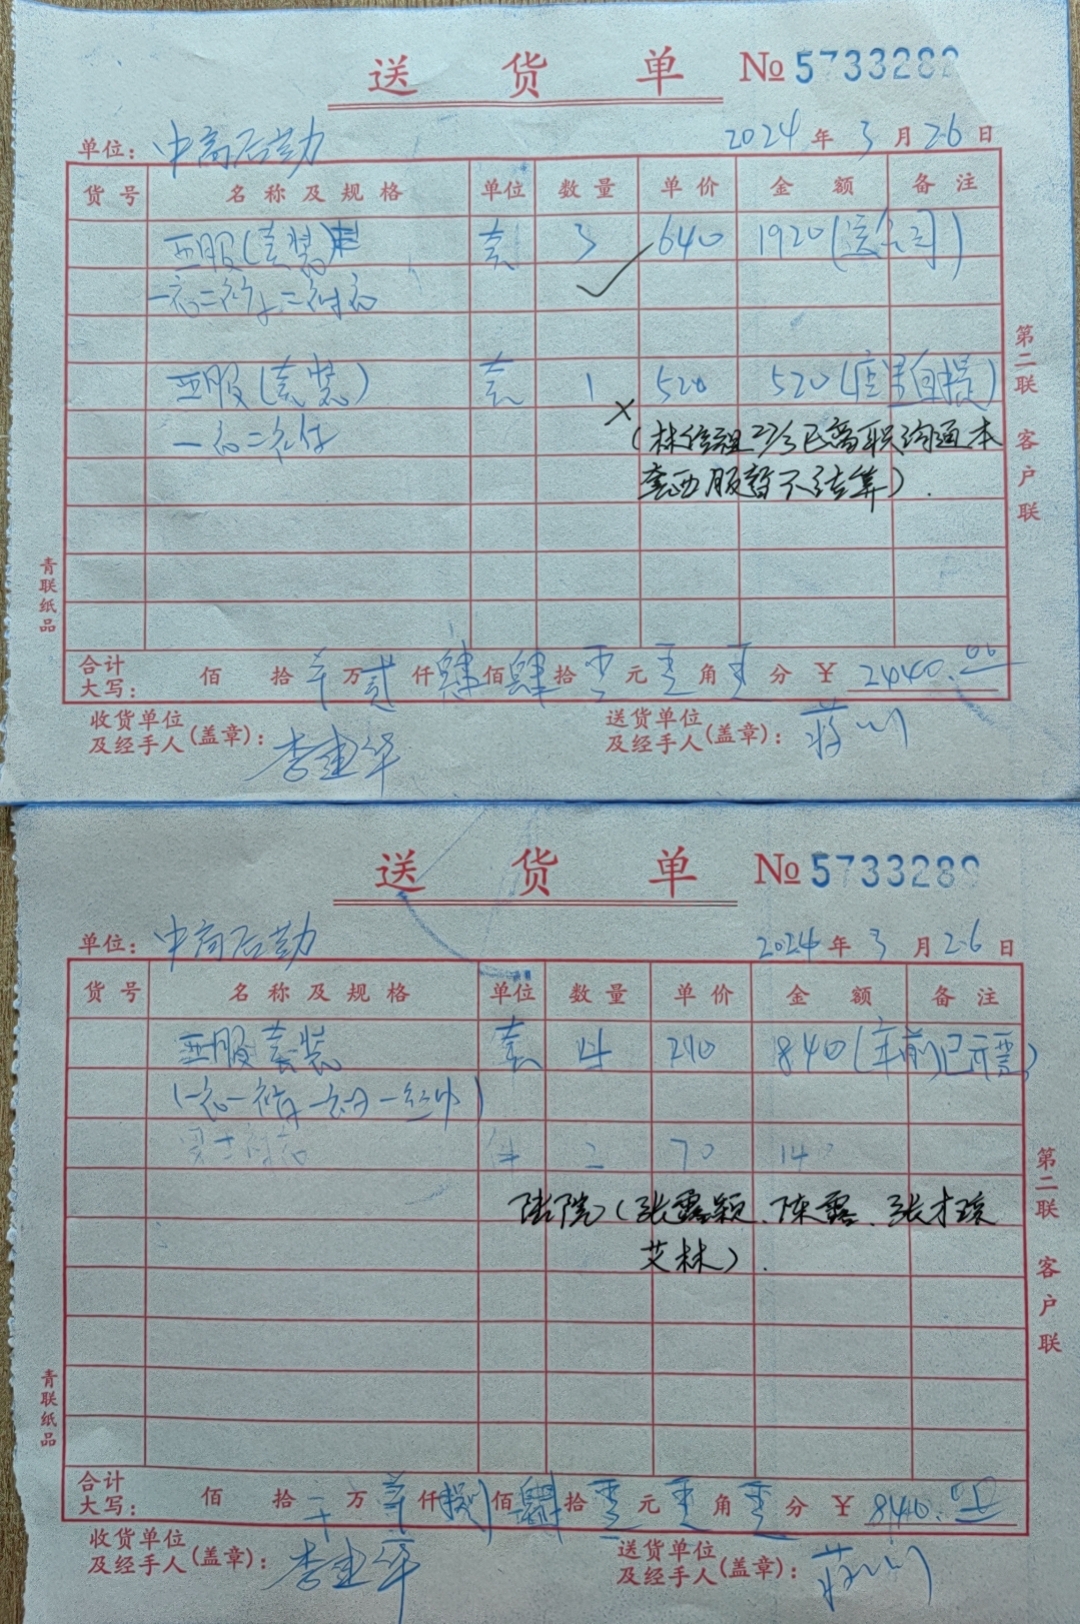 送 货 单 №5733282
单位: 中商后勤 2024 年 3 月 26 日
货号 名称及规格 单位 数量 单价 金额 备注
西服(套装) 套 3 640 1920(送公司)
一衣二裤二衬衣
西服(套装) 套 1 520 520(店里自提)
一衣二裤
(林 27/3已离职沟通本
套西服暂不结算).
第二联 客户联
青联纸品
合计 大写: 佰 拾 万 贰 仟 肆 佰 肆 拾 零 元 零 角 零 分 ¥ 2440.00
收货单位及经手人(盖章): 李建华 送货单位及经手人(盖章): 蒋
送 货 单 №573328
单位: 中商后勤 2024 年 3 月 26 日
货号 名称及规格 单位 数量 单价 金额 备注
西服套装 套 4 210 840(年前已开票)
(一衣一裤一衬一丝巾)
男士衬衣 件 二 70 140
陆院(张露颖、陈露、张才琼
艾林).
第二联 客户联
青联纸品
合计 大写: 佰 拾 万 仟 捌 佰 肆 拾 零 元 零 角 零 分 ¥ 840.00
收货单位及经手人(盖章): 李建华 送货单位及经手人(盖章): 蒋